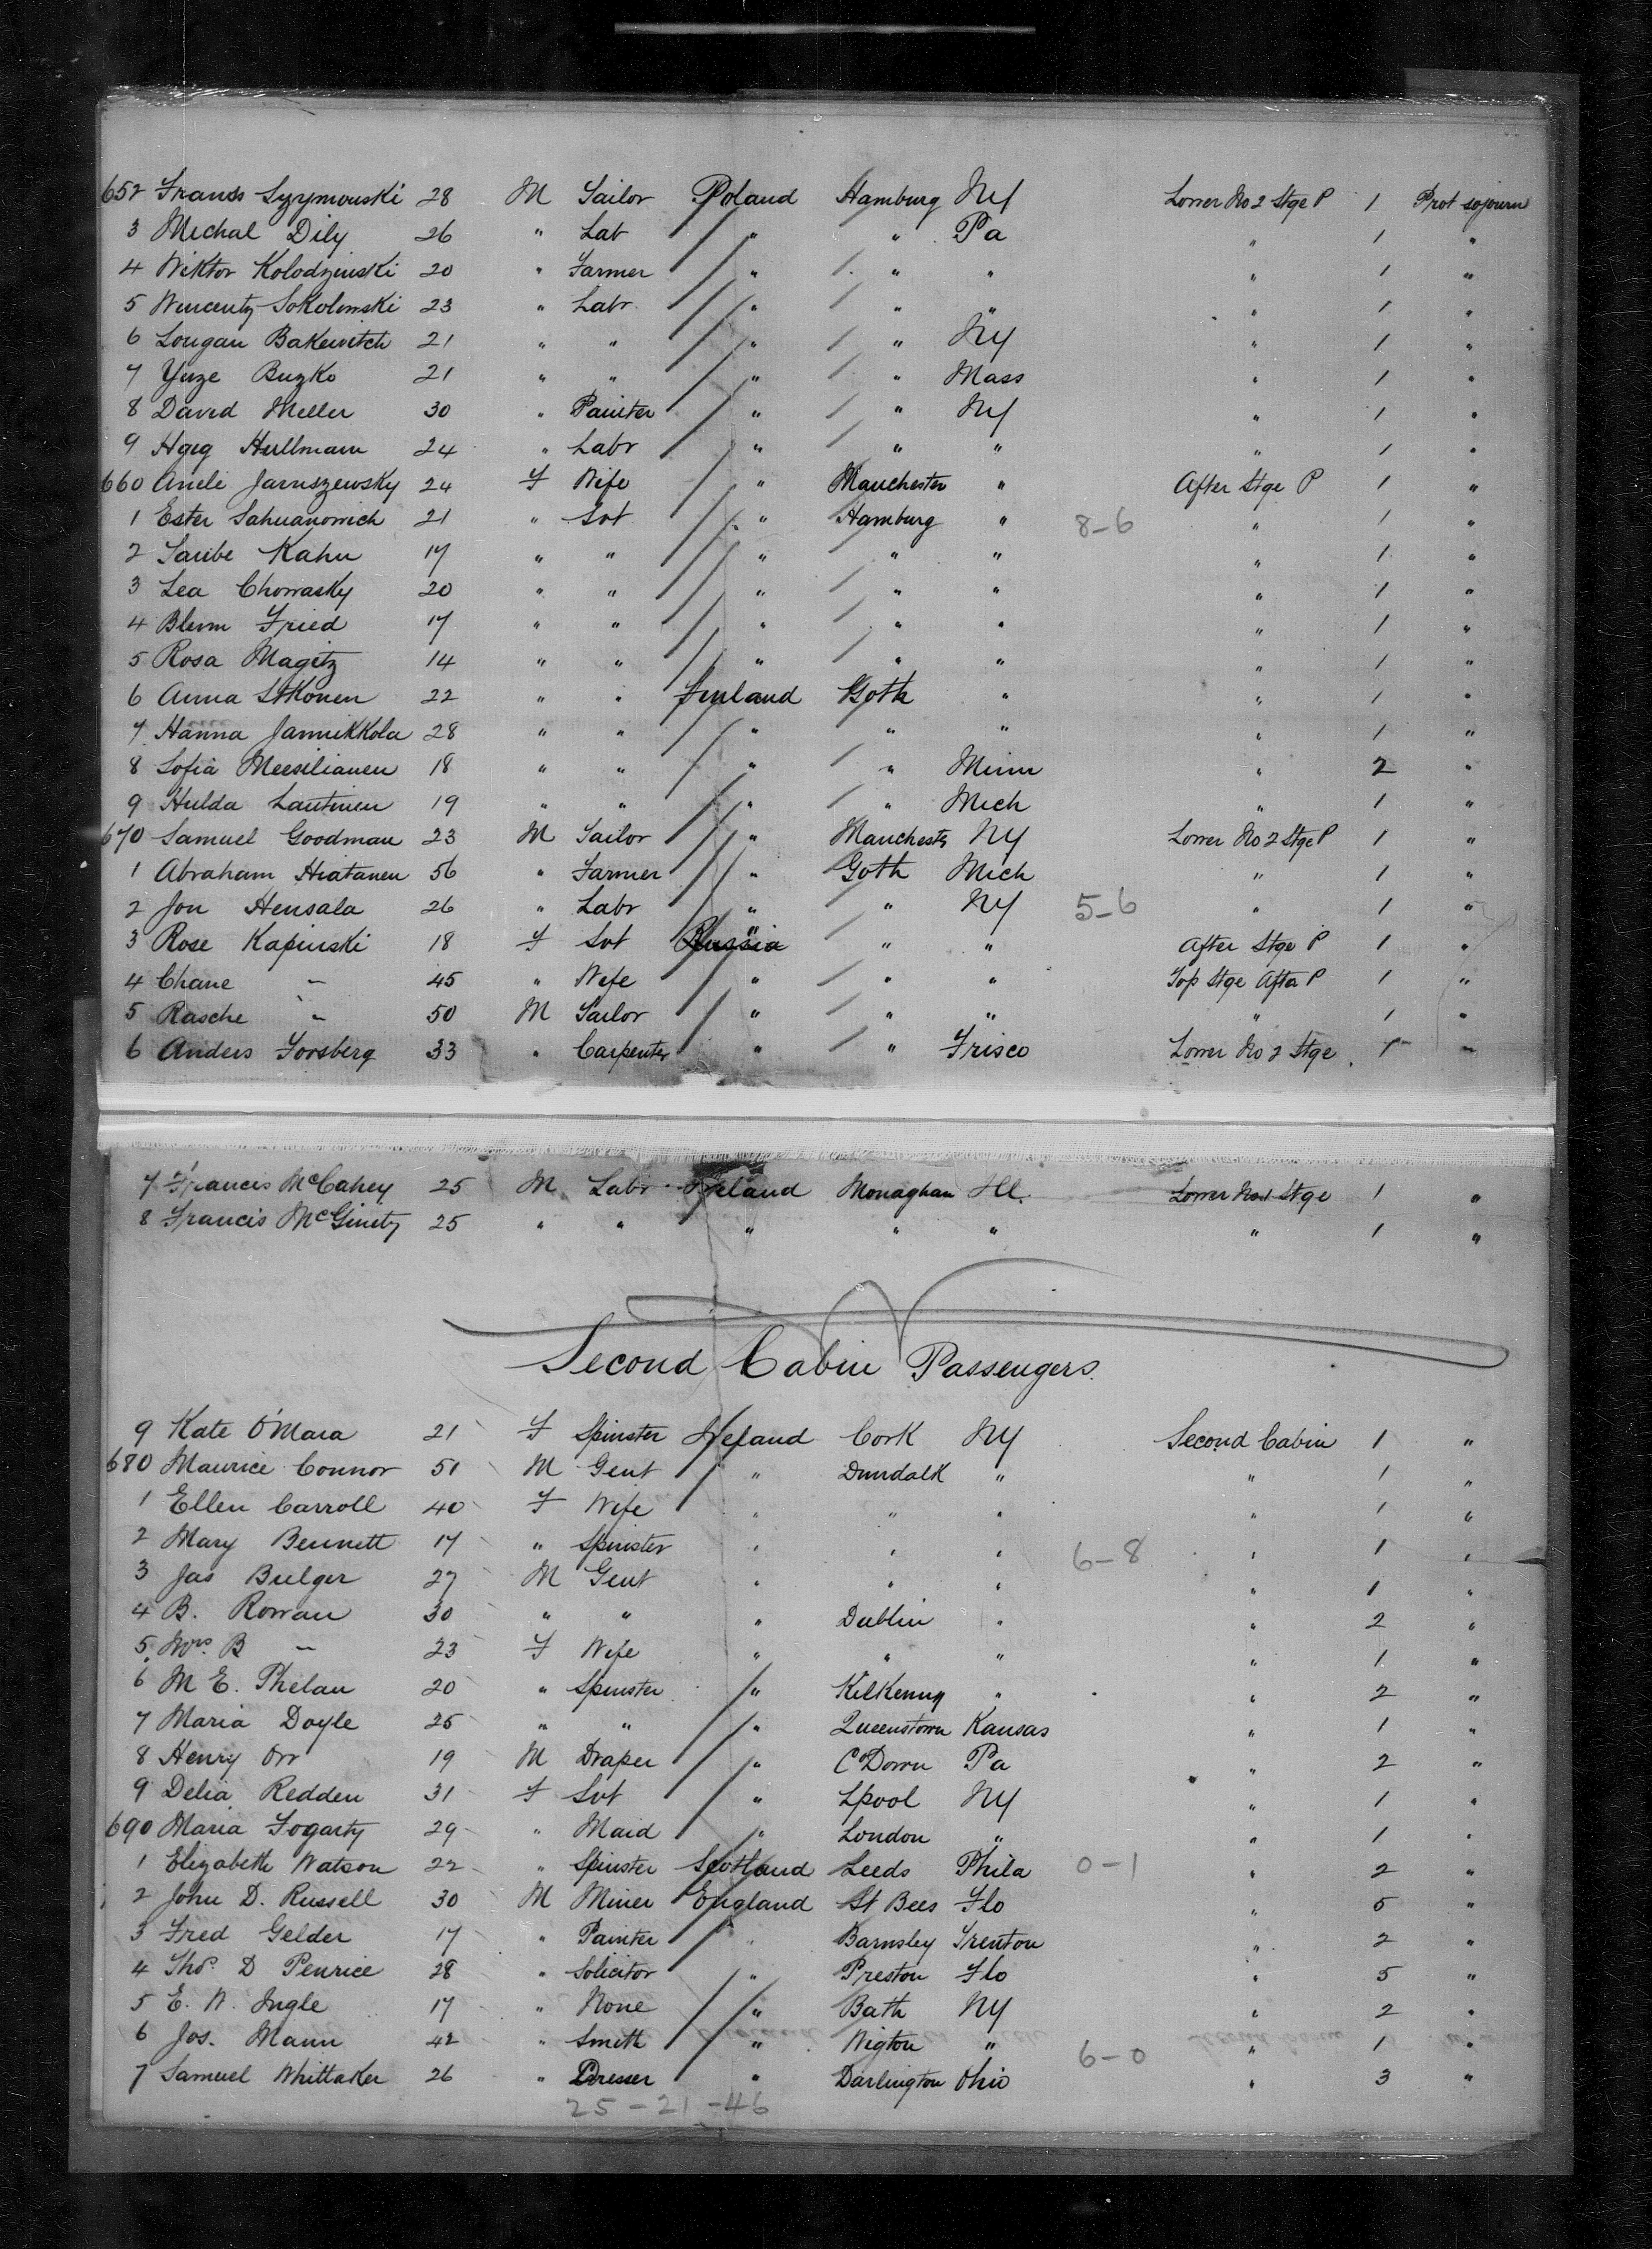 652 Francis Szymouski 28 M Sailor Poland Hamburg NY Lower No 2 Stge P 1 Prot sojourn
3 Michal Dily 26 " Lab " " Pa " 1 "
4 Wiktor Kolodzinski 20 " Farmer " " " " 1 "
5 Wincenty Sokolowski 23 " Labr " " " " 1 "
6 Longan Bakewitch 21 " " " " NY " 1 "
7 Yuze Buzko 21 " " " " Mass " 1 "
8 David Meller 30 " Painter " " NY " 1 "
9 Hullmann 24 " Labr " " " " 1 "
660 Aneli Jaruszewsky 24 F Wife " Manchester " After Stge P 1 "
1 Ester Sahuanowich 21 " Svt " Hamburg " 8-6 " 1 "
2 Saribe Kahn 17 " " " " " " 1 "
3 Lea Chowasky 20 " " " " " " 1 "
4 Blum Fried 17 " " " " " " 1 "
5 Rosa Magitz 14 " " " " " " 1 "
6 Anna Stkonen 22 " " Finland Goth " " 1 "
7 Hanna Jannikkola 28 " " " " " " 1 "
8 Sofia Meesilianen 18 " " " " Minn " 2 "
9 Hulda Lautinen 19 " " " " Mich " 1 "
670 Samuel Goodman 23 M Sailor " Manchestr NY Lower No 2 Stge P 1 "
1 Abraham Hiatanen 56 " Farmer " Goth Mich " 1 "
2 Jon Hensala 26 " Labr " " NY 5-6 " 1 "
3 Rose Kapinski 18 F Svt Russia " " After Stge P 1 "
4 Chane " 45 " Wife " " " Top Stge Afta P 1 "
5 Rasche " 50 M Sailor " " " " 1 "
6 Anders Forsberg 33 " Carpenter " " Frisco Lower No 2 Stge 1 "
7 Francis McCahey 25 M Labr Ireland Monaghan Ill. Lower No 1 Stge 1 "
8 Francis McGinety 25 " " " " " " 1 "
Second Cabin Passengers.
9 Kate O'Mara 21 F Spinster Ireland Cork NY Second Cabin 1 "
680 Maurice Connor 51 M Gent " Dundalk " " 1 "
1 Ellen Carroll 40 F Wife " " " " 1 "
2 Mary Bennett 17 " Spinster " " " 6-8 " 1 "
3 Jas Bulger 27 M Gent " " " " 1 "
4 B. Rowan 30 " " " Dublin " " 2 "
5 Mrs. B " 23 F Wife " " " " 1 "
6 M E. Phelan 20 " Spinster " Kilkenny " " 2 "
7 Maria Doyle 25 " " " Queenstown Kansas " 1 "
8 Henry Orr 19 M Draper " Co Down Pa " 2 "
9 Delia Redden 31 F Svt " Lpool NY " 1 "
690 Maria Fogarty 29 " Maid " London " " 1 "
1 Elizabeth Watson 22 " Spinster Scotland Leeds Phila 0-1 " 2 "
2 John D. Russell 30 M Miner England St Bees Flo " 5 "
3 Fred Gelder 17 " Painter " Barnsley Trenton " 2 "
4 Thos. D Penrice 28 " Solicitor " Preston Flo " 5 "
5 E. W. Ingle 17 " None " Bath NY " 2 "
6 Jos. Mann 42 " Smith " Wigton " 6-0 " 1 "
7 Samuel Whittaker 26 " Dresser " Darlington Ohio " 3 "
25-21-46